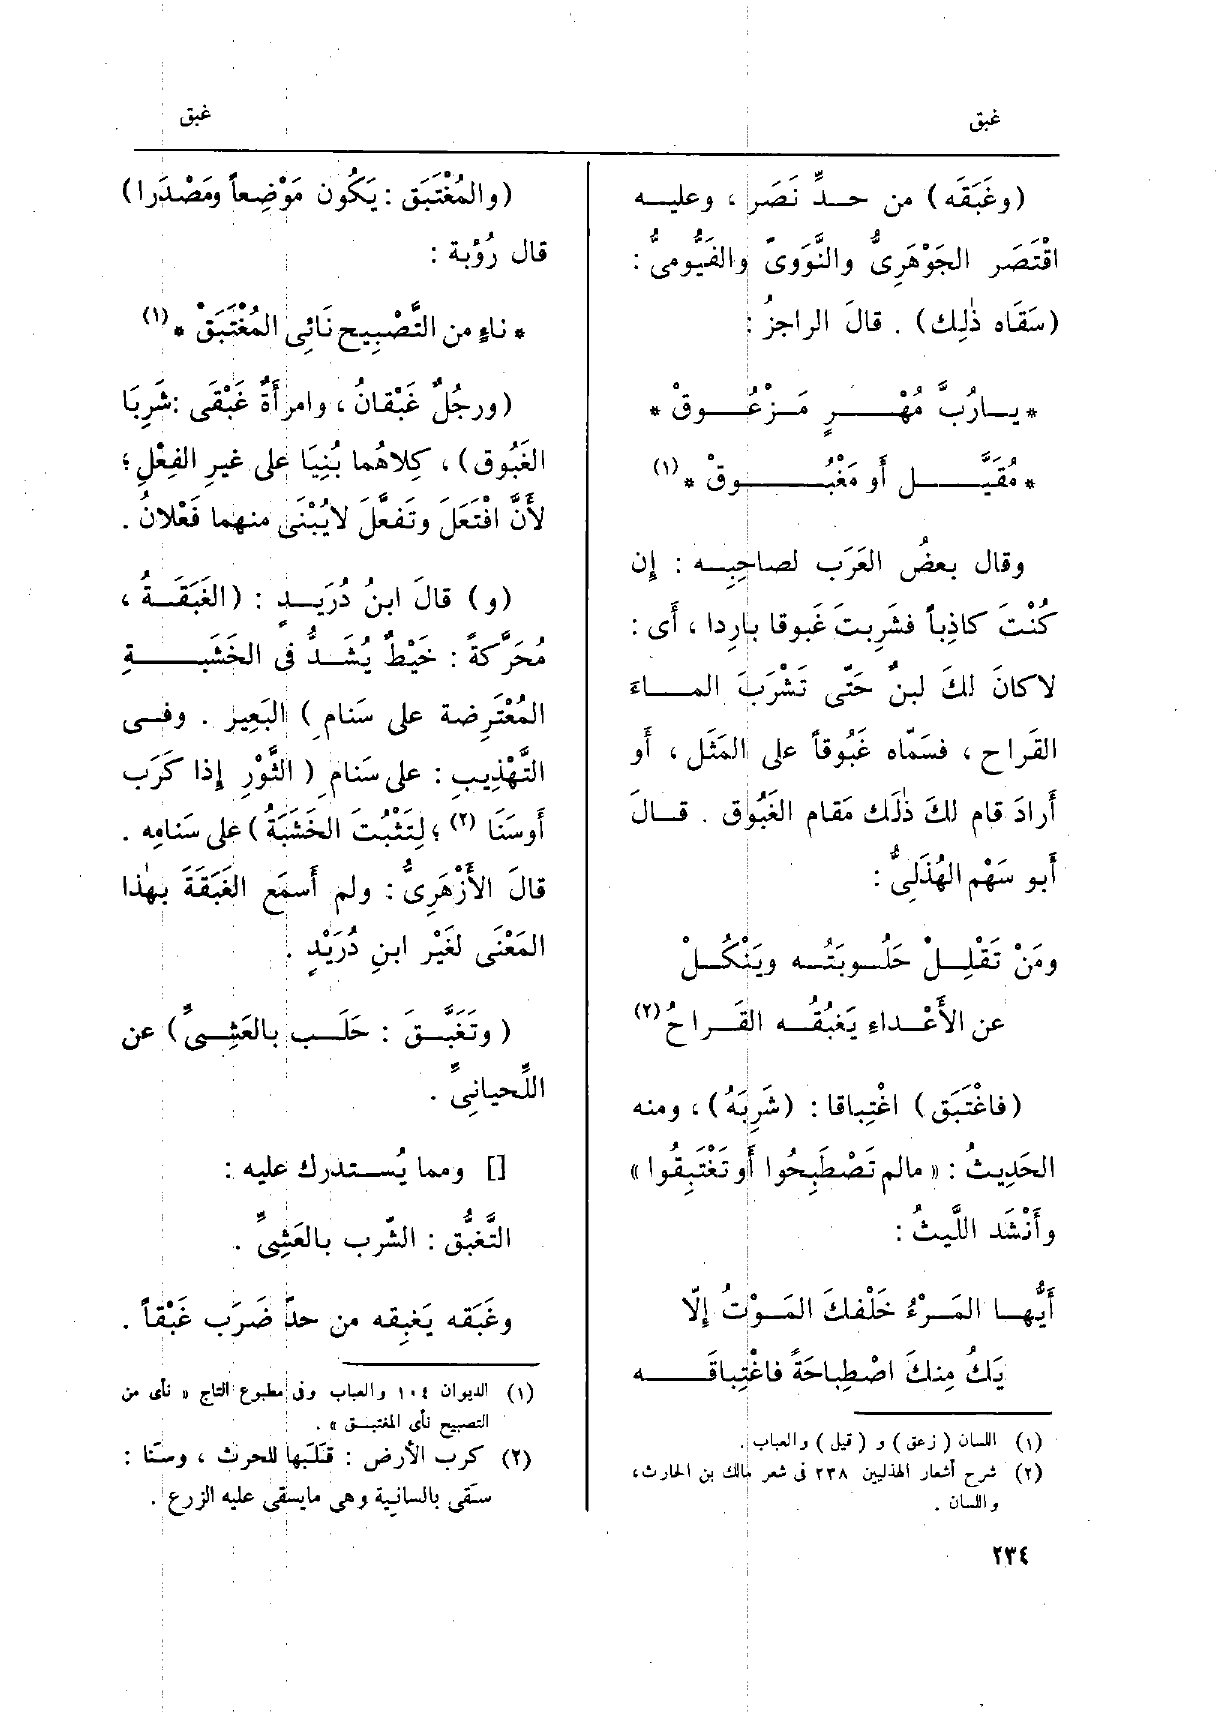 غبق
غبق
(وغَبَقَه) من حــدِّ نَصَر ، وعليــه
اقْتَصَر الجَوْهَرِىُّ والنَّوَوىّ والفَيُّومىُّ :
(سَقَاه ذٰلِك) . قالَ الراجزُ :
* يــارُبَّ مُهْــــرٍ مَــزْعُــوقْ *
* مُقَيَّــــلٍ أو مَغْبُــــوقْ * (١)
وقال بعضُ العَرَب لصاحِبِــه : إن
كُنْتَ كاذِباً فشَرِبتَ غَبوقا بارِدا ، أى :
لاكانَ لكَ لبنٌ حَتّى تَشْرَبَ المــاءَ
القَراح ، فسَمّاه غَبُوقاً على المَثَل ، أو
أرادَ قام لكَ ذٰلَك مَقام الغَبُوق . قــالَ
أبو سَهْم الهُذَلِىُّ :
ومَنْ تَقْلِــلْ حَلُــوبَتُــه ويَنْكُــلْ
عن الأَعْــداءِ يَغبُقُــه القَــراحُ (٢)
(فاغْتَبَق) اغْتِباقا : (شَرِبَهُ) ، ومنه
الحَدِيثُ : « مالم تَصْطَبِحُوا أو تَغْتَبِقُوا »
وأَنْشَد اللَّيثُ :
أَيُّهــا المَــرْءُ خَلْفكَ المَــوْتُ إلّا
يَكُ مِنكَ اصْطِباحَةً فاغْتِباقَــه
(١) اللسان ( زعق ) و ( قيل ) والعباب .
(٢) شرح أشعار الهذليين ٢٣٨ فى شعر مالك بن الحارث،
واللسان .
٢٣٤
(والمُغْتَبَق : يَكُون مَوْضِعاً ومَصْدَرا)
قال رُؤبة :
* ناءٍ من التَّصْبِيح نَائِى المُغْتَبَقْ * (١)
(ورجُلٌ غَبْقانُ ، وامرأةٌ غَبْقَى : شَرِبَا
الغَبُوق) ، كِلاهُما بُنِيَا على غيرِ الفِعْلِ ؛
لأَنَّ افْتَعَلَ وتَفعَّلَ لايُبْنَى منهما فَعْلانُ .
(و) قالَ ابنُ دُرَيــدٍ : (الغَبَقَــةُ ،
مُحَرَّكةً : خَيْطٌ يُشَــدُّ فى الخَشَبــــةِ
المُعْتَرِضة على سَنامِ ) البَعِير . وفــى
التَّهْذِيبِ : على سَنامِ ( الثَّوْرِ إذا كَرَب
أوسَنَا (٢) ؛ لِتَثْبُتَ الخَشَبَةُ) على سَنامِه .
قالَ الأَزْهَرِىُّ : ولم أَسمَع الغَبَقَةَ بهٰذا
المَعْنَى لغَيْر ابنِ دُرَيْدٍ .
( وتَغَبَّــقَ : حَلَــب بالعَشِــىِّ ) عن
اللِّحيانِىِّ .
[] ومما يُســتدرك عليه :
التَّغبُّق : الشّرب بالعَشِىِّ .
وغَبَقه يَغبِقه من حدّ ضَرَب غَبْقاً .
(١) الديوان ١٠٤ والعباب وفى مطبوع التاج « نأى من
التصبيح نأى المغتبــق » .
(٢) كرب الأرض : قَلَبها للحرث ، وسَنَا :
سَقى بالسانية وهى مايسقى عليه الزرع .